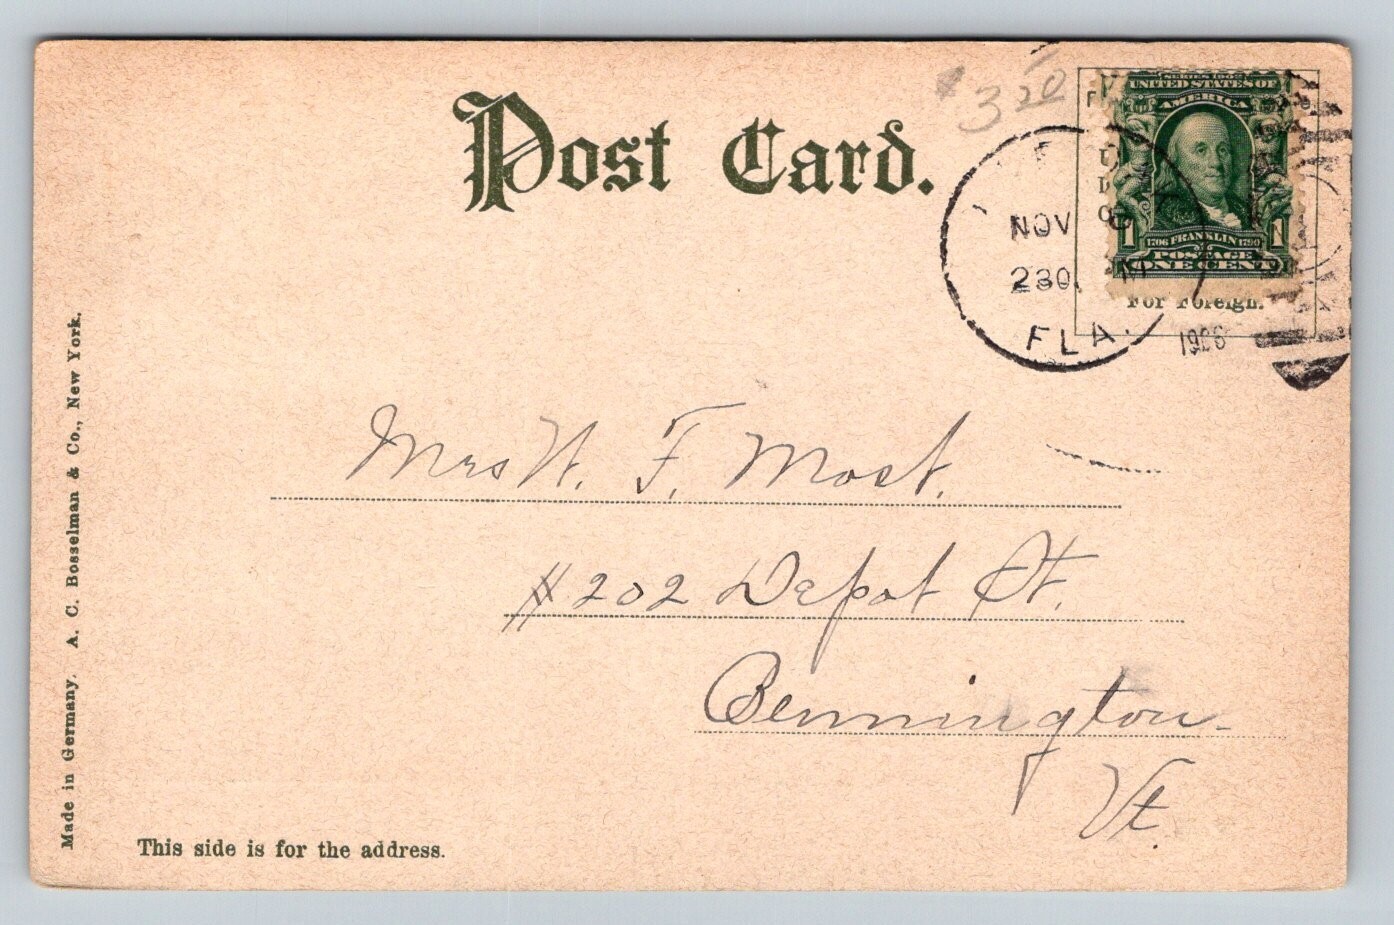 Post Card.
$3 20
SERIES 1902
UNITED STATES OF
AMERICA
1 1706 FRANKLIN 1790 1
POSTAGE
ONE CENT
For Foreign.
NOV 6
230 M
FLA.
1906
Mrs W. F. Most.
#202 Depot St.
Bennington
Vt.
This side is for the address.
Made in Germany. A. C. Bosselman & Co., New York.